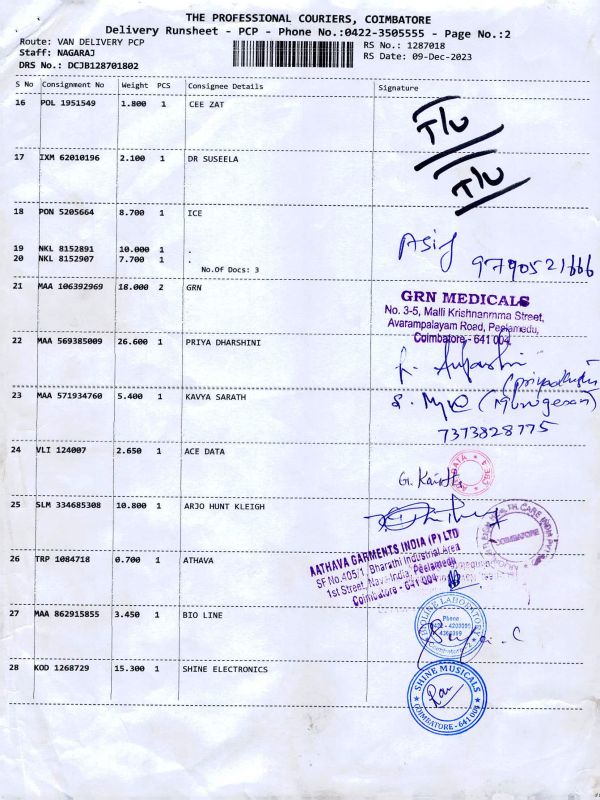 THE PROFESSIONAL COURIERS, COIMBATORE
Delivery Runsheet - PCP - Phone No.:0422-3505555 - Page No.:2
Route: VAN DELIVERY PCP
RS No.: 1287018
Staff: NAGARAJ
RS Date: 09-Dec-2023
DRS No.: DCJB128701802
S No Consignment No Weight PCS Consignee Details Signature
16 POL 1951549 1.800 1 CEE ZAT
T/U
17 IXM 62010196 2.100 1 DR SUSEELA
T/U
18 PON 5205664 8.700 1 ICE
19 NKL 8152891 10.000 1 .
20 NKL 8152907 7.700 1 .
No.Of Docs: 3
Asif
9790521666
21 MAA 106392969 18.000 2 GRN
GRN MEDICALS
No. 3-5, Malli Krishnanmma Street,
Avarampalayam Road, Peelamedu,
Coimbatore - 641 004
22 MAA 569385009 26.600 1 PRIYA DHARSHINI
23 MAA 571934760 5.400 1 KAVYA SARATH
(Murugesan)
7373828775
24 VLI 124007 2.650 1 ACE DATA
25 SLM 334685308 10.800 1 ARJO HUNT KLEIGH
COIMBATORE
26 TRP 1084718 0.700 1 ATHAVA
AATHAVA GARMENTS INDIA (P) LTD
SF No.405/1, Bharathi Industrial Area
1st Street, Nava India, Peelamedu
Coimbatore - 641 004
27 MAA 862915855 3.450 1 BIO LINE
Phone
28 KOD 1268729 15.300 1 SHINE ELECTRONICS
SHINE MUSICALS
COIMBATORE - 641 009